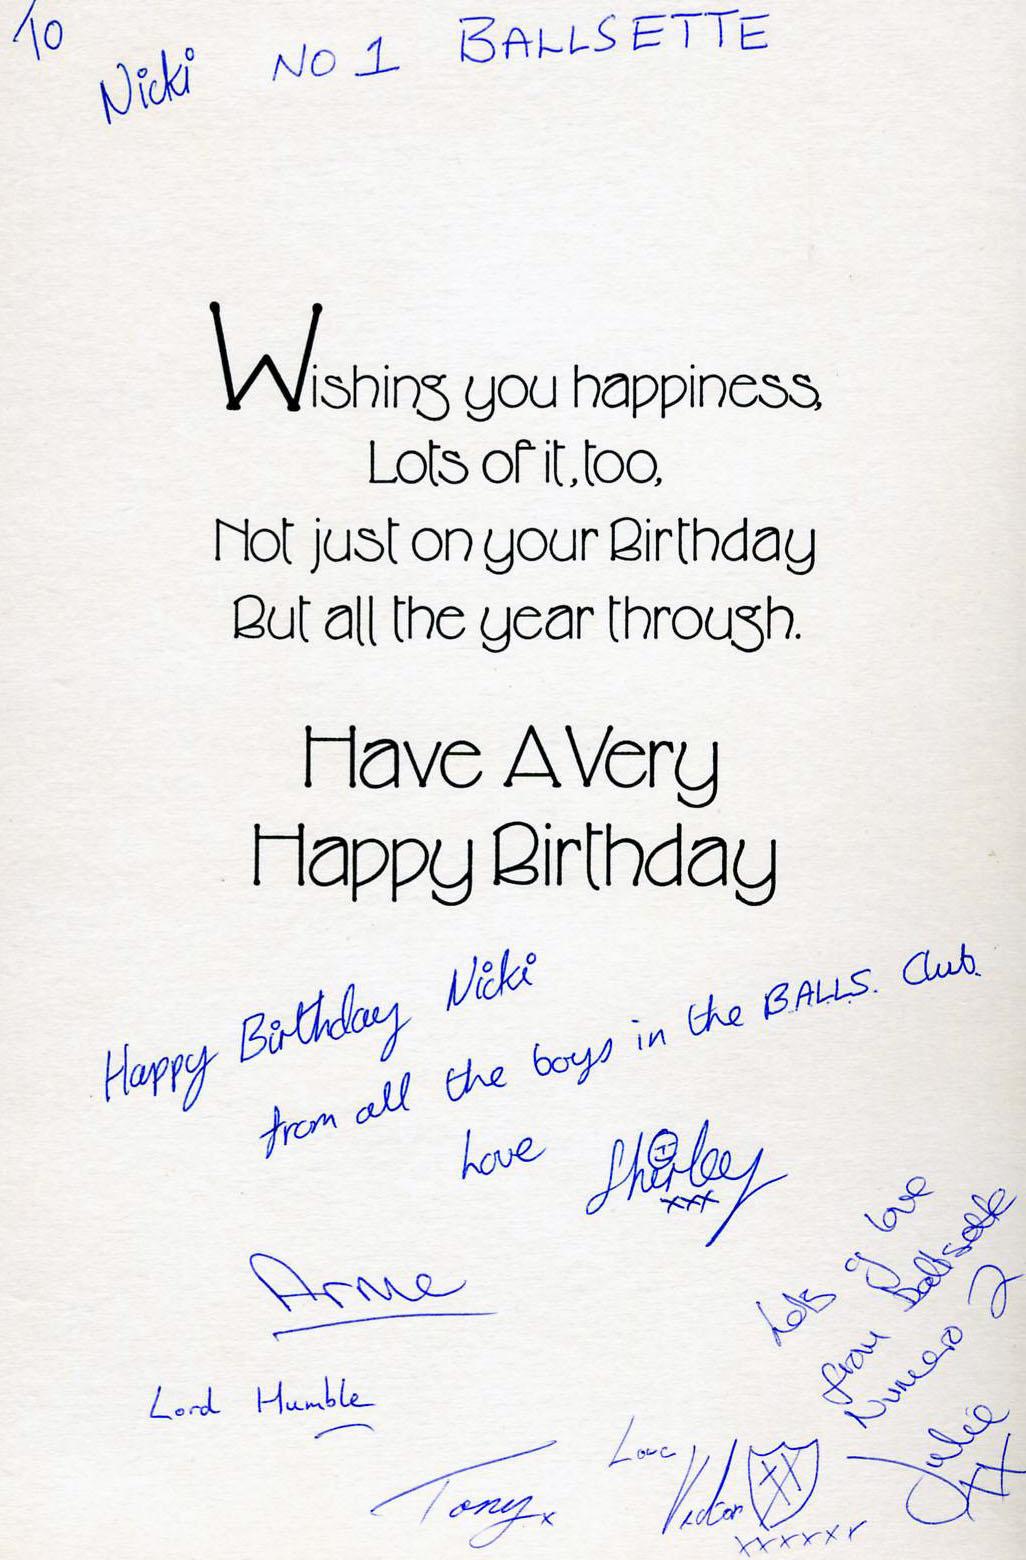 To
Nicki NO 1 BALLSETTE
Wishing you happiness,
Lots of it, too,
Not just on your Birthday
But all the year through.
Have A Very
Happy Birthday
Happy Birthday Nicki
from all the boys in the B.A.L.L.S. Club.
Love Shirley
xxx
Arnie
Lord Humble
Tony x
Love
Victor XX
xxxxxx
Lots of love
from Ballsette
Numero 2
Julie
XX